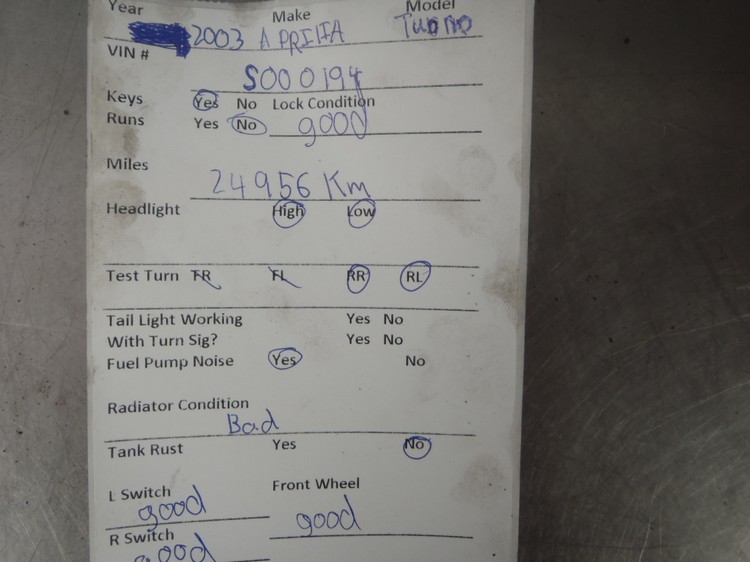 Year Make Model
2003 APRILIA Tuono
VIN #
S000194
Keys Yes No Lock Condition
Runs Yes No good
Miles
24956 Km
Headlight High Low
Test Turn FR FL RR RL
Tail Light Working Yes No
With Turn Sig? Yes No
Fuel Pump Noise Yes No
Radiator Condition
Bad
Tank Rust Yes No
L Switch Front Wheel
good good
R Switch
good